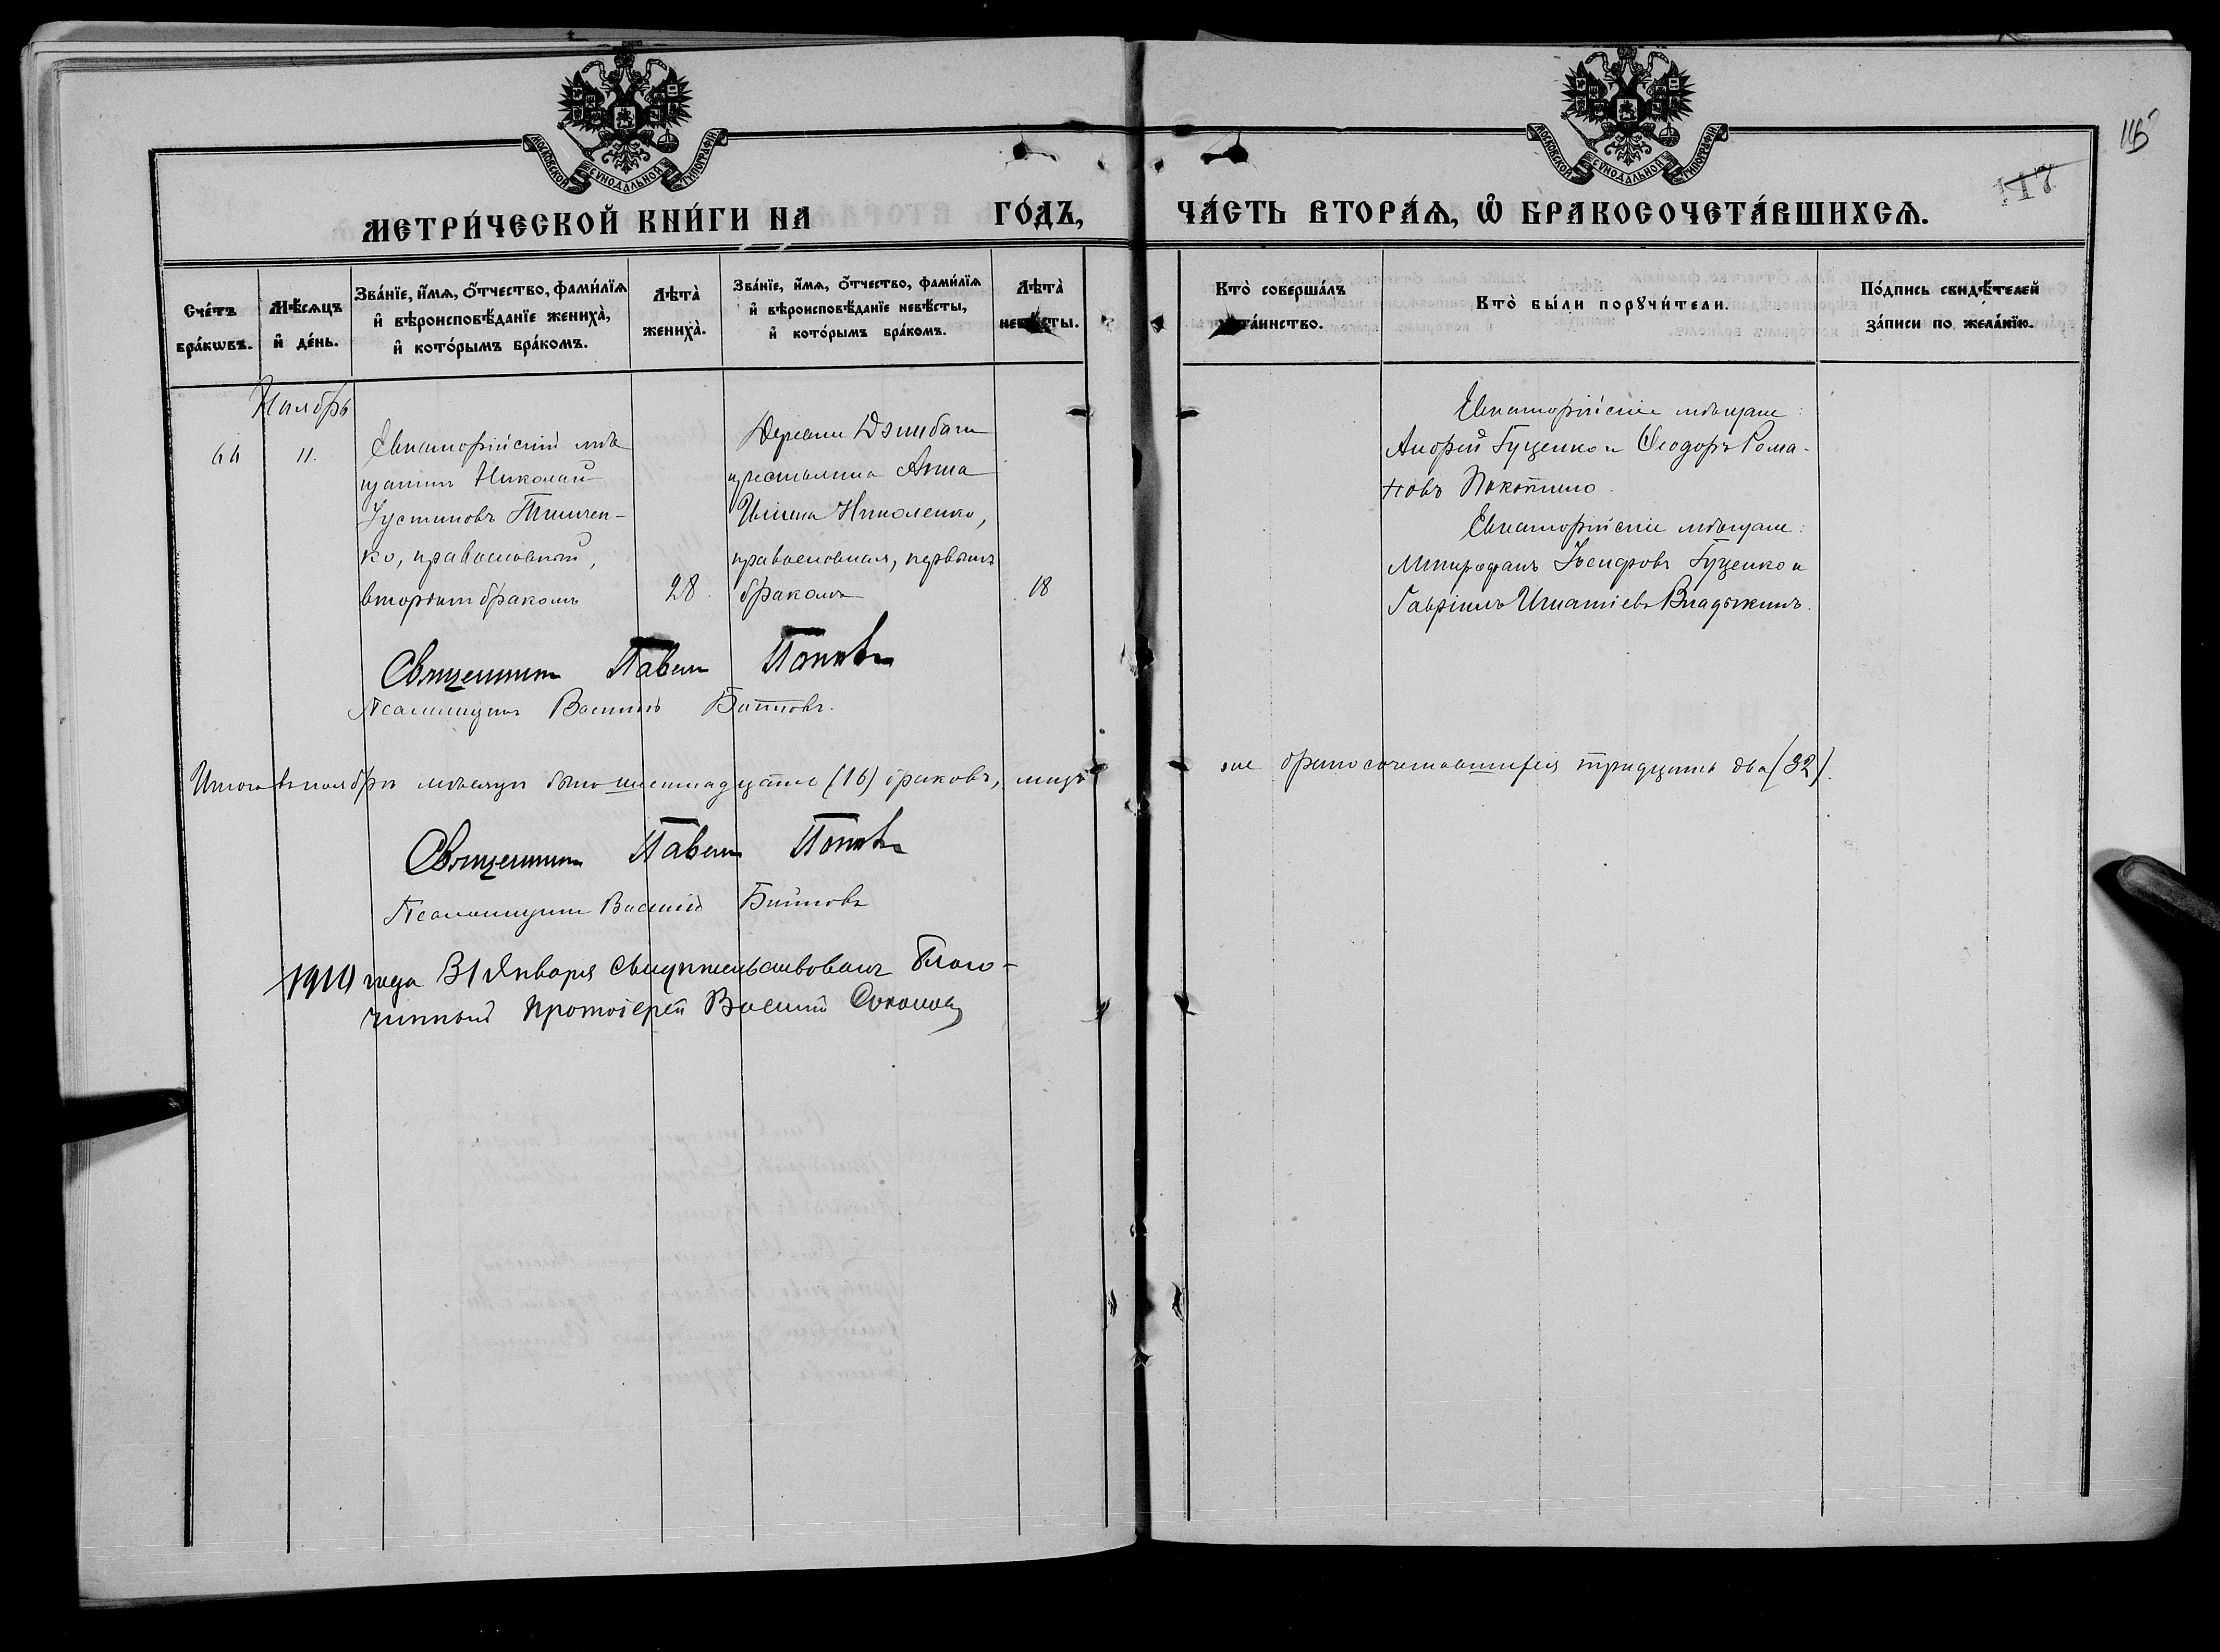 115
117
МОСКОВСКОЙ СУНОДАЛЬНОЙ ТИПОГРАФІИ
МОСКОВСКОЙ СУНОДАЛЬНОЙ ТИПОГРАФІИ
МЕТРИ́ЧЕСКОЙ КНИ́ГИ НА ГО́ДЪ, ЧА́СТЬ ВТОРА́Ѧ, Ѽ БРАКОСОЧЕТА́ВШИХСѦ.
Сче́тъ
бра́кѡвъ.
Мѣ́сѧцъ
и҆ де́нь.
Зва́нїе, и҆́мѧ, ѻ҆́тчество, фами́лїѧ
и҆ вѣроисповѣ́данїе жениха̀,
и҆ кото́рымъ бра́комъ.
Лѣта̀
жениха̀.
Зва́нїе, и҆́мѧ, ѻ҆́тчество, фами́лїѧ
и҆ вѣроисповѣ́данїе невѣ́сты,
и҆ кото́рымъ бра́комъ.
Лѣта̀
невѣ́сты.
Кто̀ соверша́лъ
та́инство.
Кто̀ бы́ли порꙋчи́тели.
По́дпись свидѣ́телей
за́писи по жела́нїю.
Ноябрь
44 11.
Евпаторійскій мѣ
щанинъ Николай
Іустиновъ Тимчен-
ко, православный,
вторымъ бракомъ
28.
Деревни
крестьянка Анна
Ильина Николенко,
православная, первымъ
бракомъ
18
Евпаторійскіе мѣщане:
Андрей Гуценко и Ѳеодоръ Рома-
новъ
Евпаторійскіе мѣщане:
Митрофанъ Іосифовъ Гуценко и
Гавріилъ Игнатіевъ Владыкинъ.
Священникъ Павелъ Поповъ
Псаломщикъ Василій
Итого въ ноябрѣ мѣсяцѣ было шестнадцать (16) браковъ, лицъ
же бракосочетавшихся тридцать два (32).
Священникъ Павелъ Поповъ
Псаломщикъ Василій
1910 года 31 Января свидѣтельствовалъ Благо-
чинный Протоіерей Василій Соколов